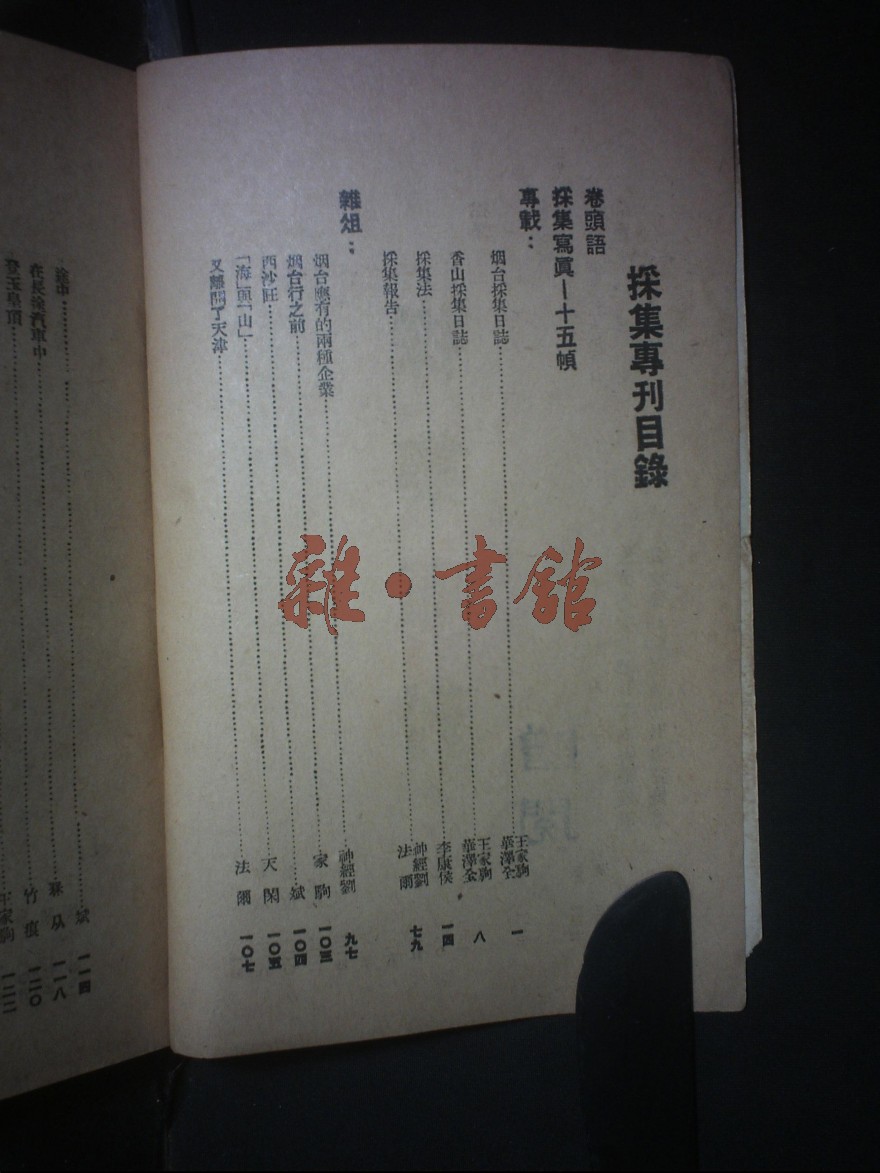 採集專刊目錄
卷頭語
採集寫眞—十五幀
專載：
烟台採集日誌……王家駒 華澤全 一
香山採集日誌……王家駒 華澤全 八
採集法……李康侯 一四
採集報告……神經劉 法爾 七九
雜俎：
烟台應有的兩種企業……神經劉 九七
烟台行之前……家駒 一〇三
西沙旺……斌 一〇四
「海」與「山」……天閑 一〇五
又離開了天津……法爾 一〇七
途中……斌 一一四
在長途汽車中……一一八
登玉皇頂……竹痕 一二〇
王家駒 一二二
雜·書館